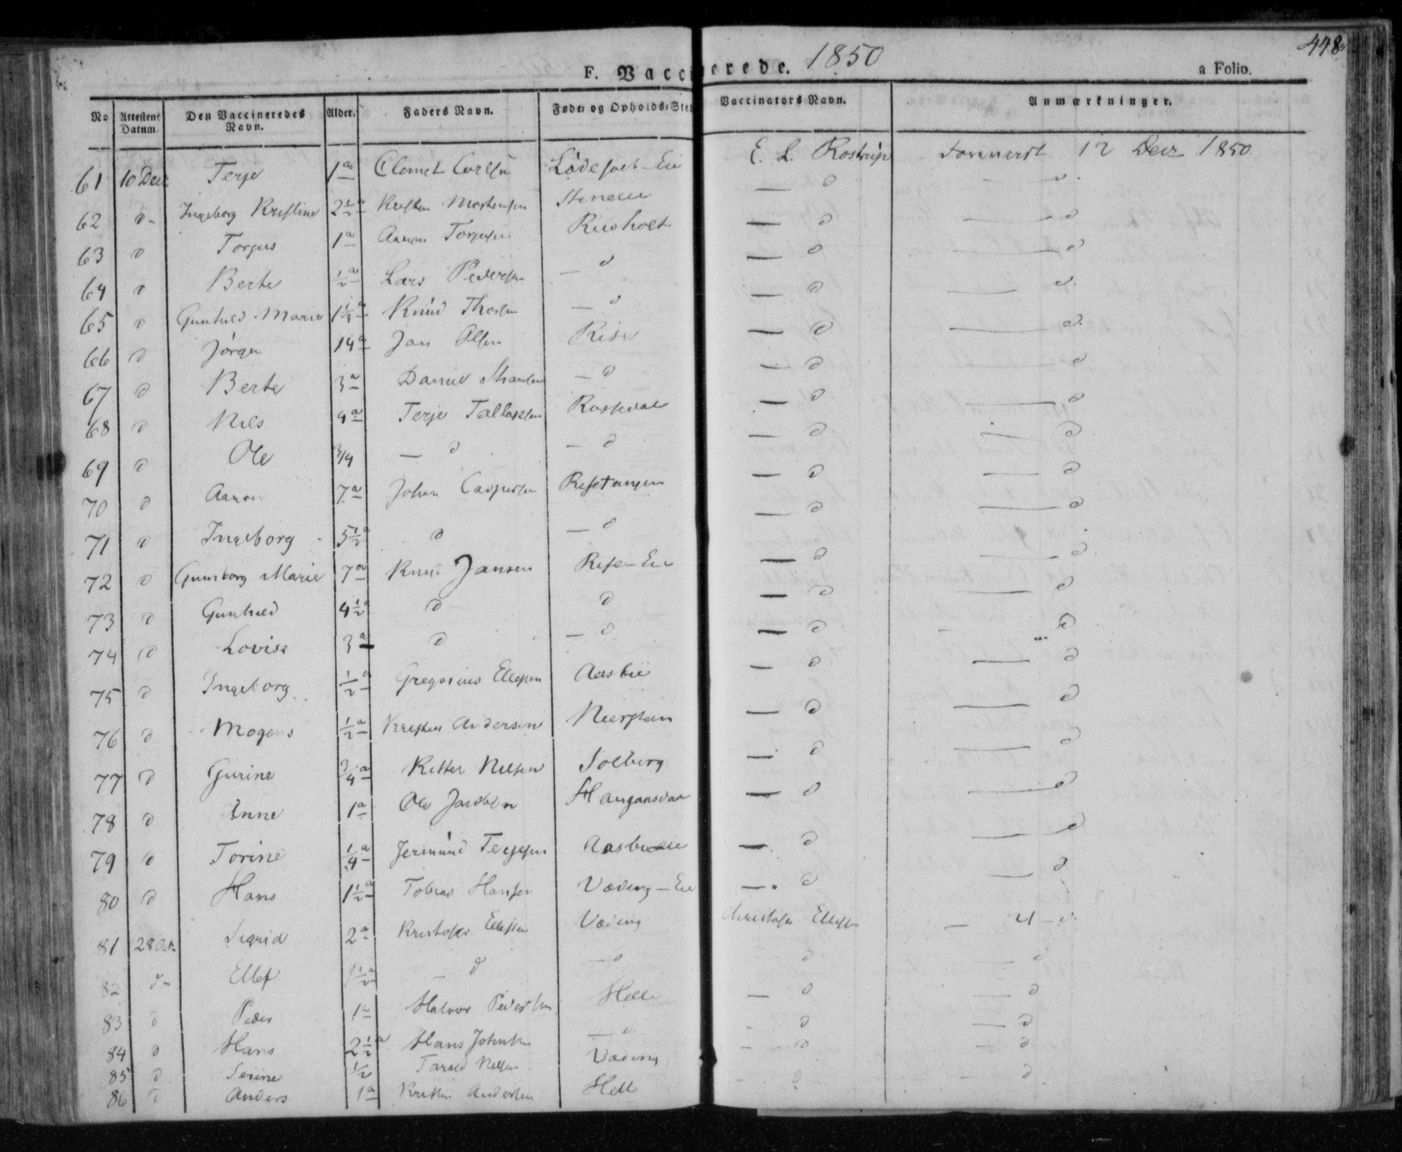 F. Vaccinerede. 1850
a Folio. 448
No Attestens Datum. Den Vaccineredes Navn. Alder. Faders Navn. Føde- og Opholds-Sted Vaccinators Navn. Anmærkninger.
61 10 Decr Terje 1 a Clemet Løde Eie E. L. Rostrup 12 Decr 1850
62 d- Ingeborg Kristine 2 1/2 a Kristen Mortensen — d — d
63 d Torjus 1 a Aanon Torjusen Riisholt — d — d
64 d Berte 1/2 a Lars Pedersen — d — d — d
65 d Gunhild Marie 1 1/2 a Knud — d — d — d
66 d Jørgen 14 a Jan Olsen Rise — d — d
67 d Berte 3 a Daniel — d — d — d
68 d Nils 4 a Terje Tallaksen — d — d
69 d Ole 3/4 — d — d — d — d
70 d Aanon 7 a Johan Caspersen Risetangen — d — d
71 d Ingeborg 5 1/2 a d — d — d — d
72 d Gunborg Marie 7 a Knud Jansen Risen Eie — d — d
73 d Gunhild 4 1/2 a d d — d — d
74 d Lovise 3 a d — d — d d
75 d Ingeborg 1/2 a Gregorius Ellefsen Aasbie — d — d
76 d Mogens 1/2 a Kristen Andersen — d — d
77 d Gurine 3/4 a Nilsen Solberg — d — d
78 d Anne 1 a Ole Jacobsen — d — d
79 d Torine 1/4 a Jermund Terjesen — d — d
80 d Hans 1 1/2 a Tobias Hansen Væding - Eie — d — d
81 28 Sigrid 2 a Kristofer Ellefsen Væding Christofer Ellefsen — 4 - d
82 d- Ellef 1 1/2 a — d — d d — d
83 d Peder 1 a Halvor Pedersen Helle — d — d
84 d Hans 2 1/2 a Hans Johnsen — d — d — d
85 d Serine 1/2 Tarald Nilsen Væding — d — d
86 d Anders 1 a Kristen Andersen Helle — d — d